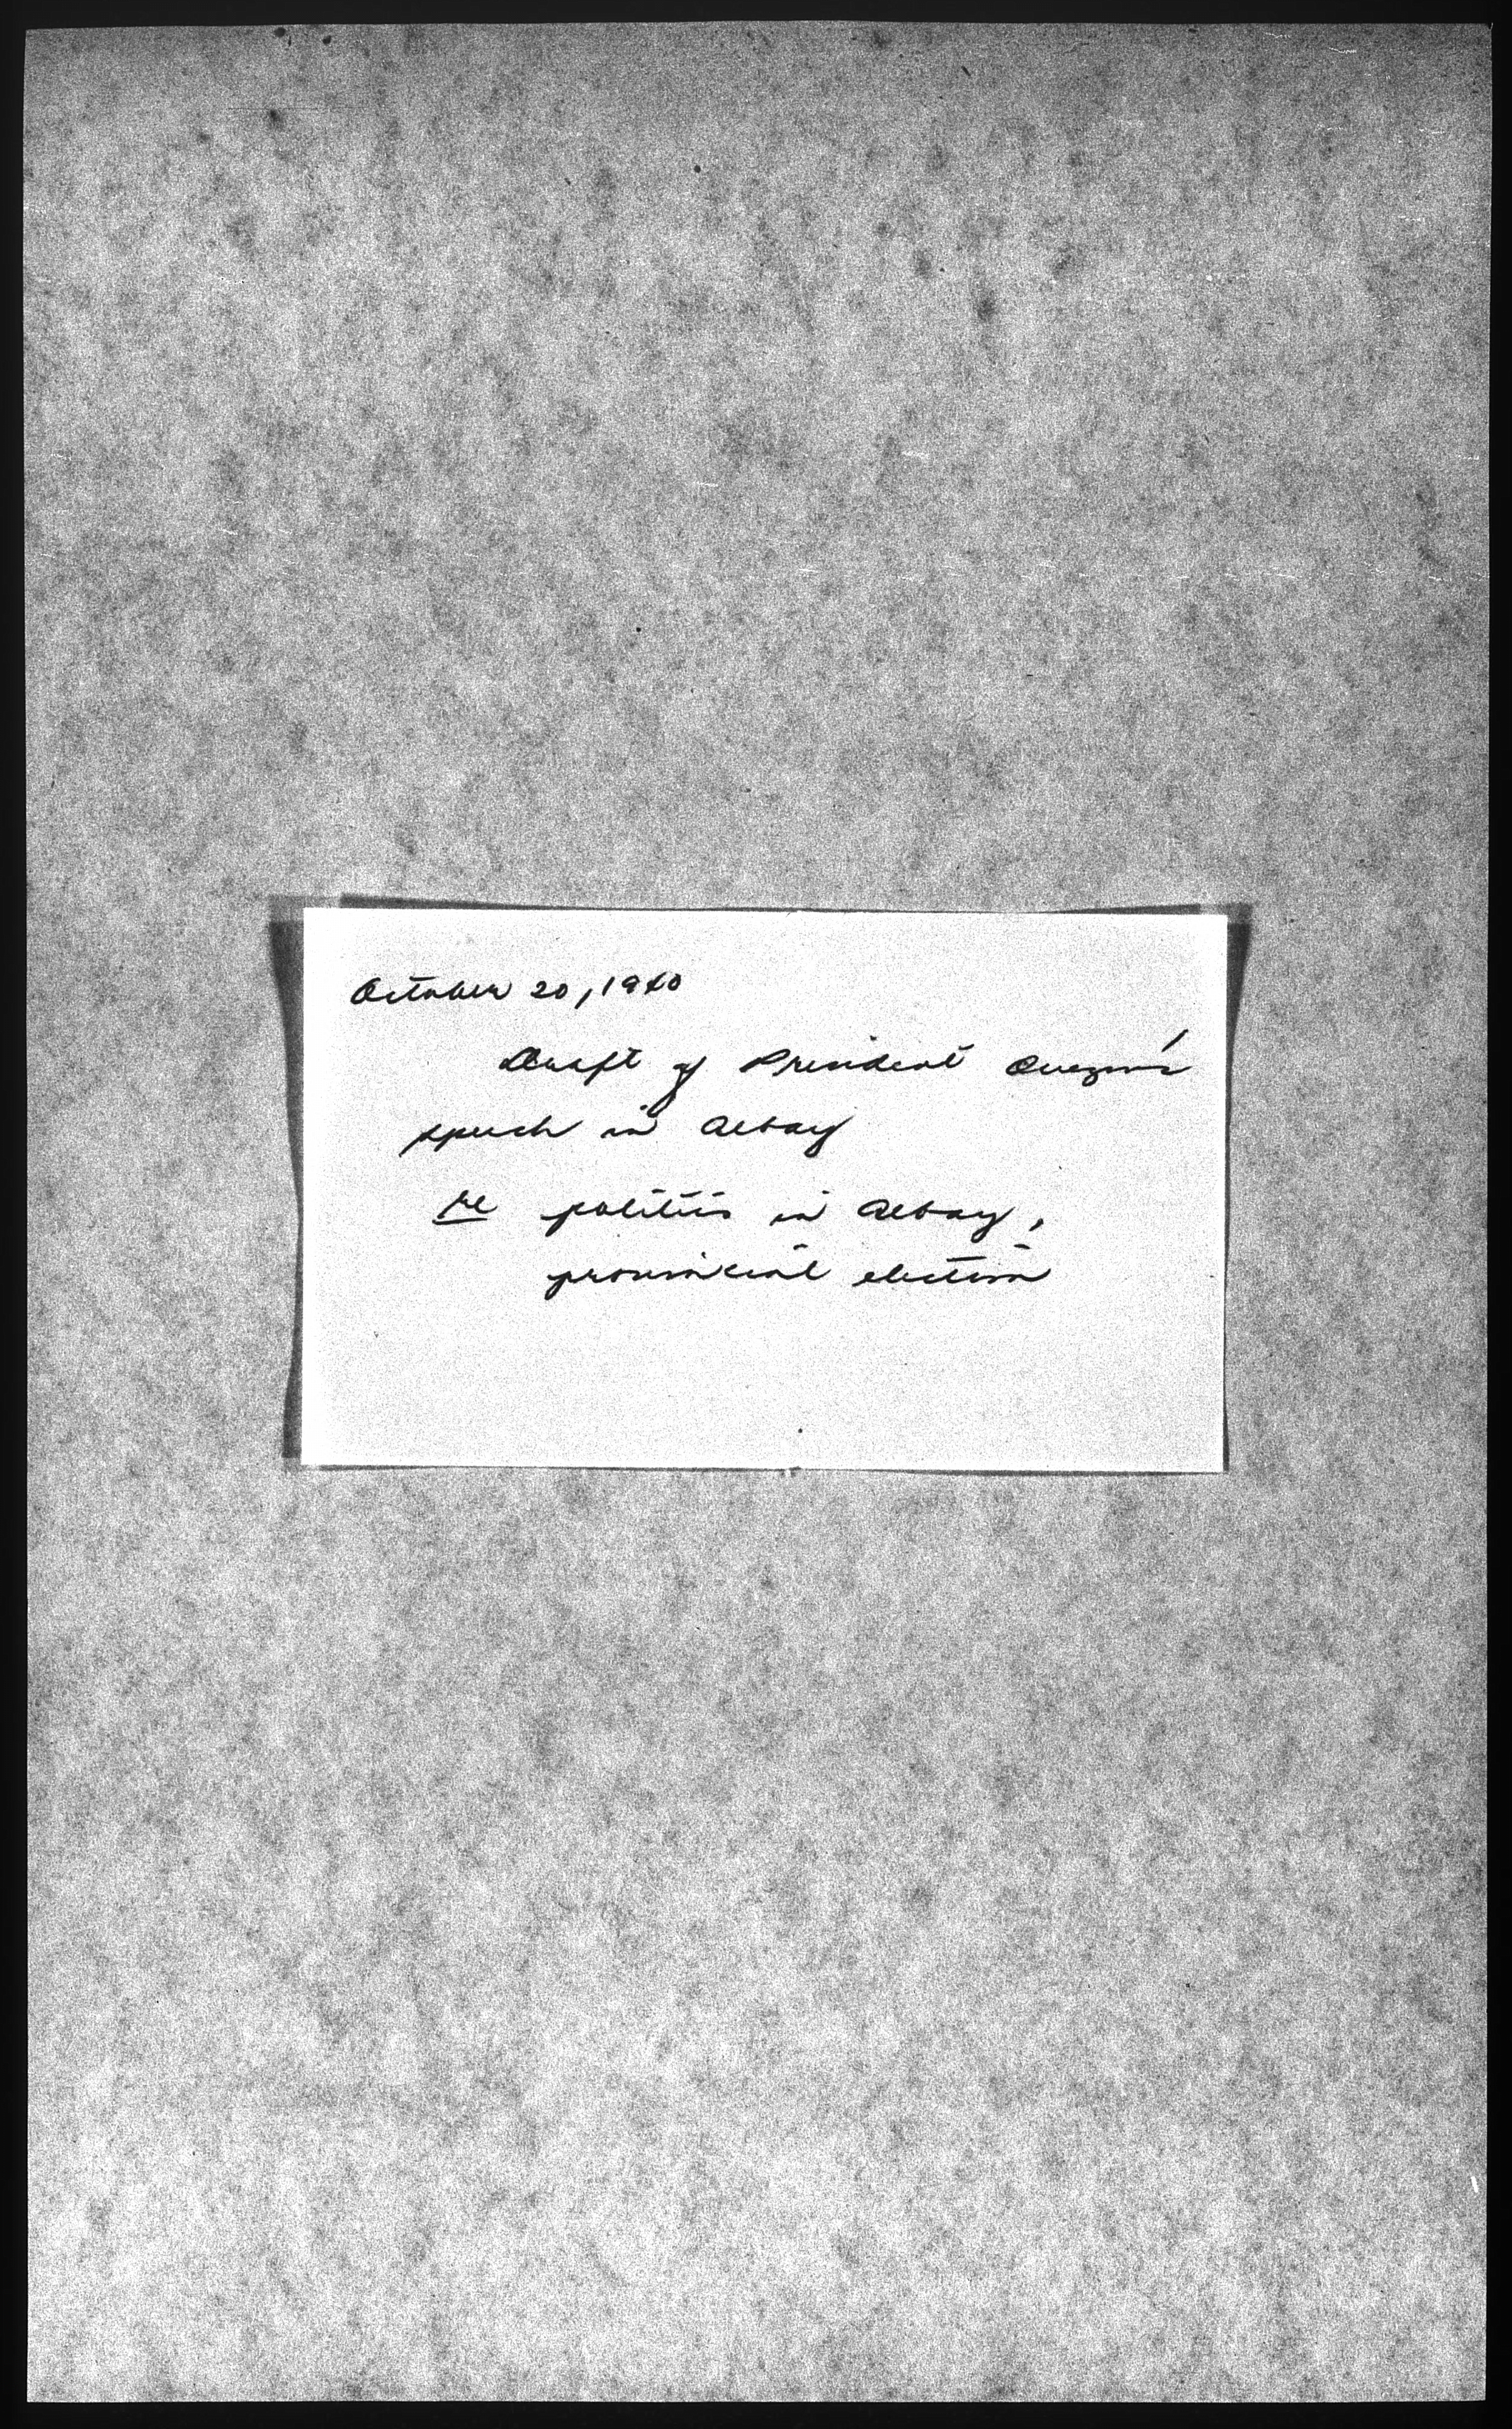 October 20, 1940
Draft of President Quezon's
speech in Albay
re politics in Albay,
provincial election